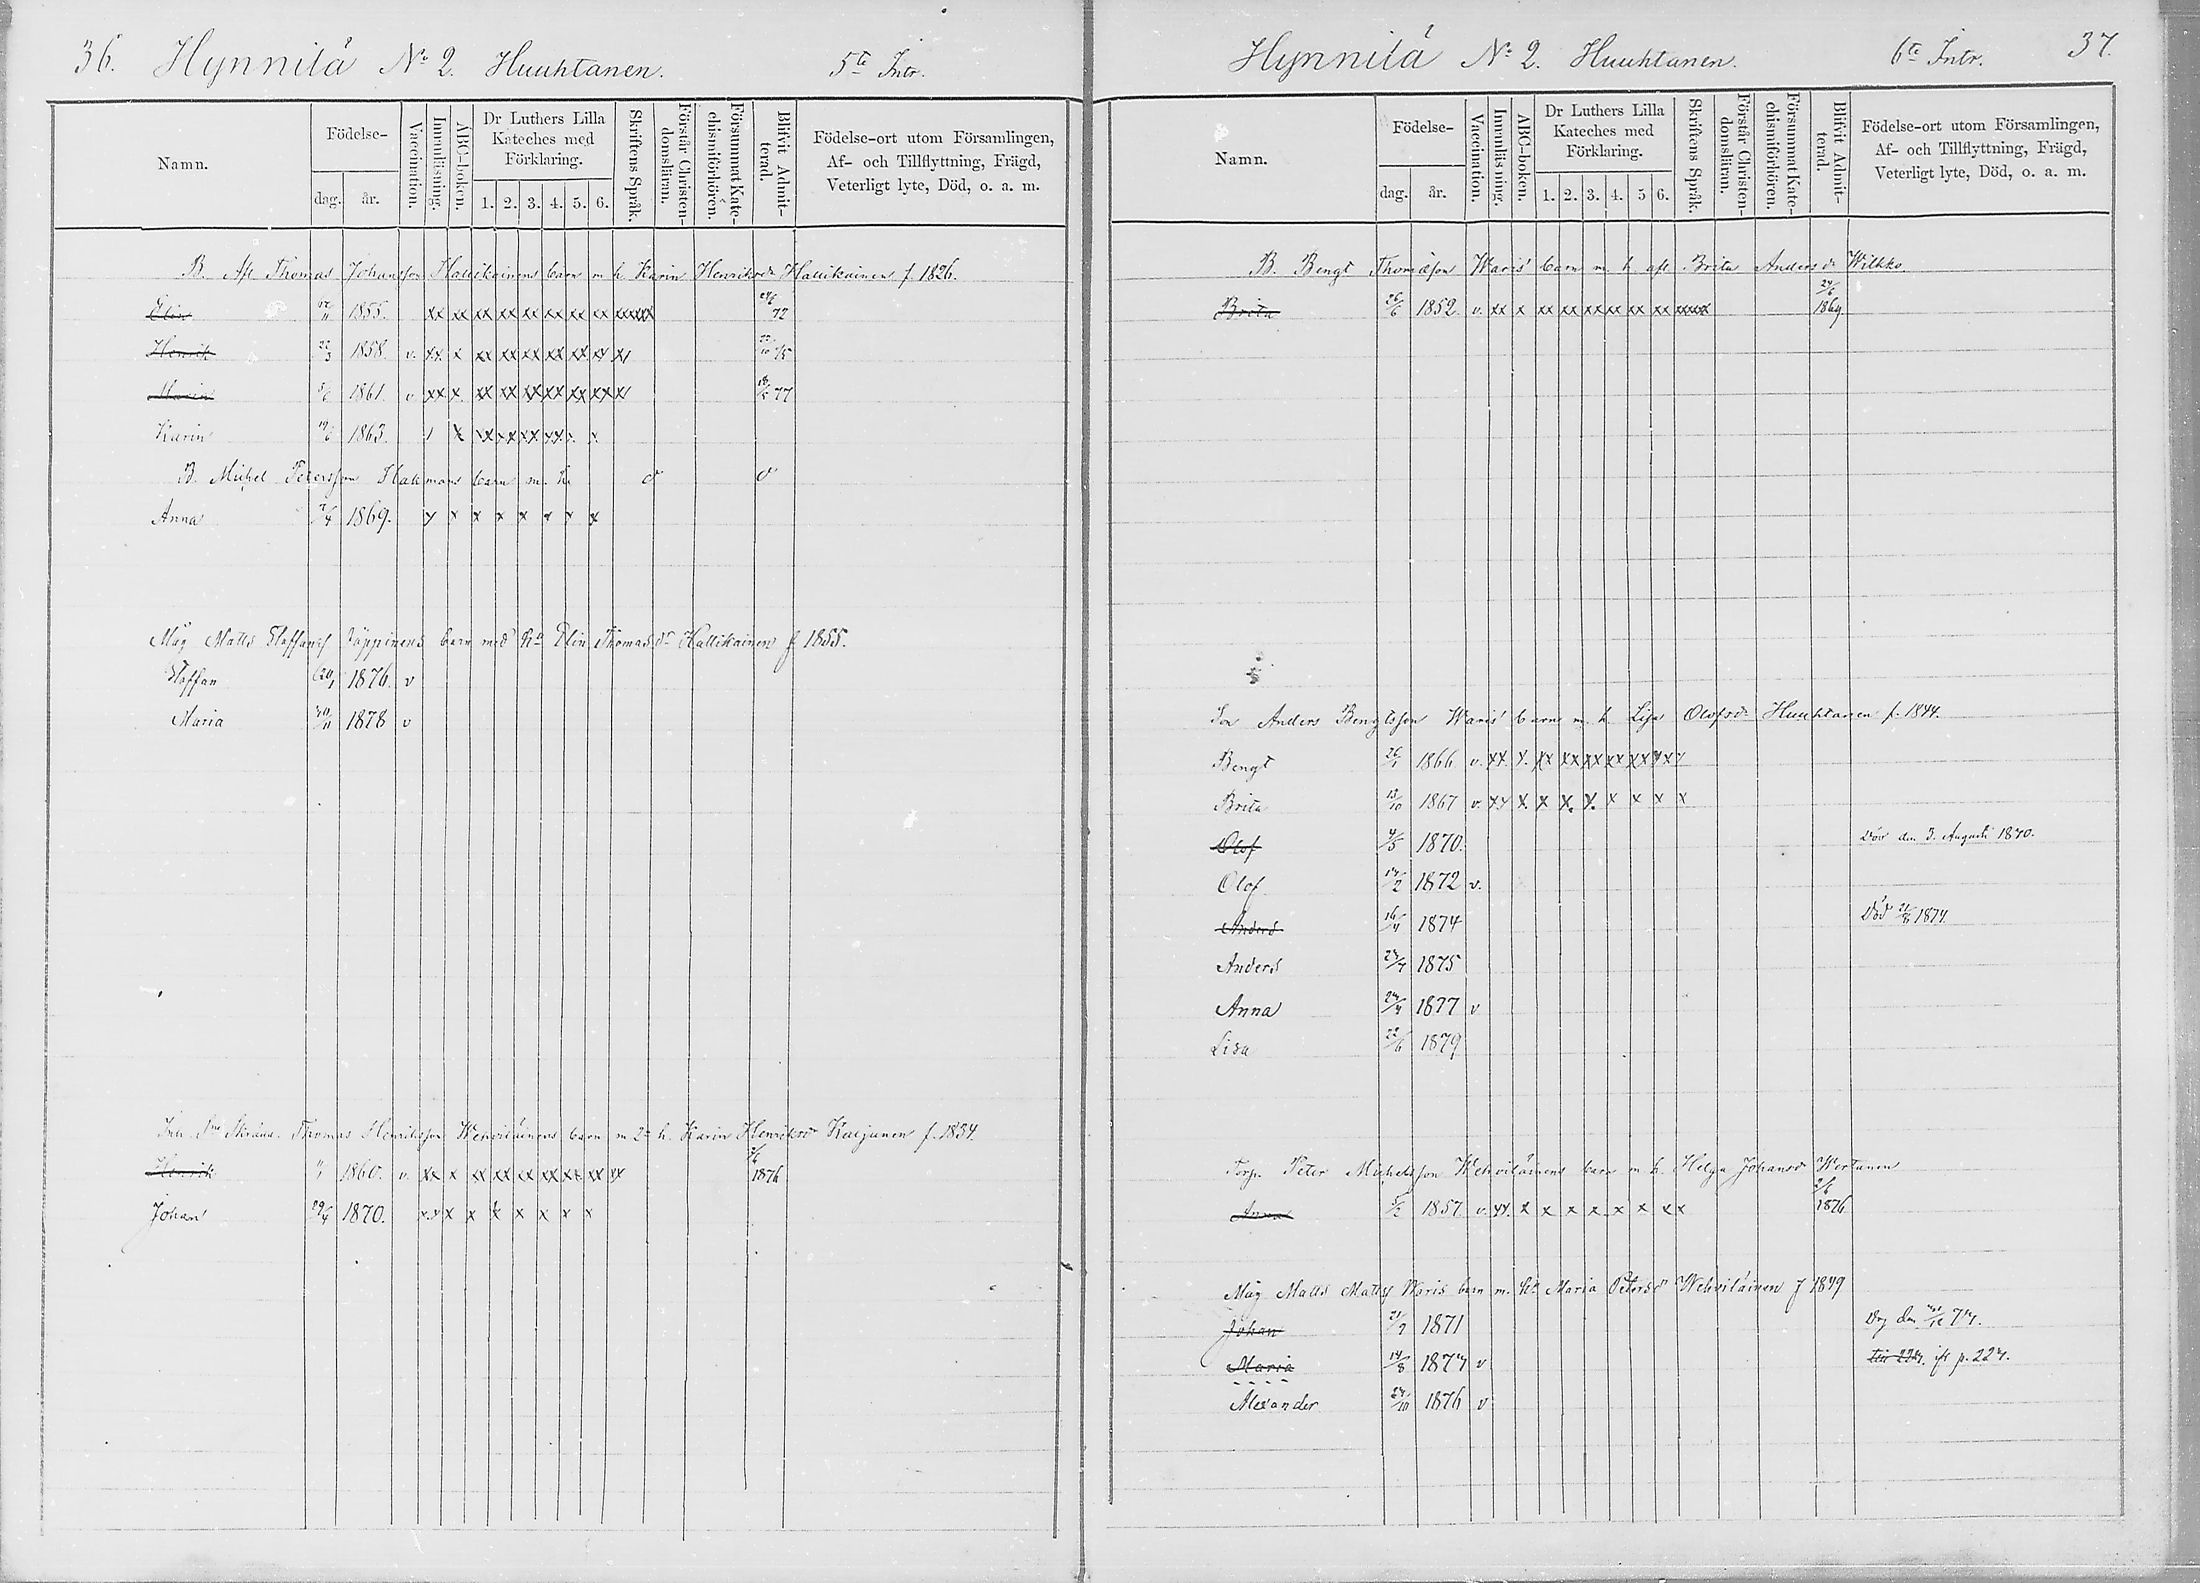 36. Hynnilä No 2. Huuhtanen. 5te Intr.
Namn.
Födelse-
dag. år.
Vaccination.
Innanläsning.
ABC-boken.
Dr Luthers Lilla
Kateches med
Förklaring.
1. 2. 3. 4. 5. 6.
Skriftens Språk.
Förstår Christen-
domsläran.
Försummat Kate-
chismiförhören.
Blifvit Admit-
terad.
Födelse-ort utom Församlingen,
Af- och Tillflyttning, Frägd,
Veterligt lyte, Död, o. a. m.
B. Afl. Thomas Johansson Hallikainens barn m h. Karin Henriksdr Hallikainen f. 1826.
Elin 1855. xx xx xx xx xx xx xx xx xxxxx 72
Henrik 22/3 1858. v. xx x xx xx xx xx xx xx x/
Maria 1861. v xx x xx xx xx xx xx xx x/ 77
Karin 1863. / x xx xx xx xx x x
B. Michel Petersson Hakmans barn m. h. d d
Anna 1869. x x x x x x x x
Måg Matts Staffanss Täppinens barn med hu Elin Thomasdr Hallikainen f 1855.
Staffan 1876. v
Maria 1878 v
Thomas Henriksson Wehviläinens barn m 2a h. Karin Henriksdr Karjunen f. 1834.
Henrik 1860. v. xx x xx xx xx xx xx xx xx 1876
Johan 1870. xx x x x x x x x
Hynnilä No 2. Huuhtanen. 6te Intr. 37.
Namn.
Födelse-
dag. år.
Vaccination.
Innanläsning.
ABC-boken.
Dr Luthers Lilla
Kateches med
Förklaring.
1. 2. 3. 4. 5 6.
Skriftens Språk.
Förstår Christen-
domsläran.
Försummat Kate-
chismiförhören.
Blifvit Admit-
terad.
Födelse-ort utom Församlingen,
Af- och Tillflyttning, Frägd,
Veterligt lyte, Död, o. a. m.
B. Bengt Thomasson Waris' barn m. h. afl. Brita Andersdr Wilkko.
Brita 26/6 1852. v. xx x xx xx xx xx xx xx xxxxx 24/6 1869
Son Anders Bengtsson Waris' barn m. h. Lisa Olofsdr Huuhtanen f. 1844.
Bengt 26/1 1866 v. xx. x. xx xx xx xx xx xx /
Brita 13/10 1867 v. xx x. x x. x. x x x x
Olof 4/5 1870. Död den 3. Augusti 1870.
Olof 1872 v.
Anders 1874 Död 1874.
Anders 1875
Anna 1877 v
Lisa 22/6 1879
Torp. Peter Michelsson Wehviläinens barn m h. Helga Johansdr Wertanen
Anna 1857. v. xx. x x x x x x xx 1876
Måg Matts Matss Waris barn m. hu Maria Petersdr Wehviläinen f 1849
Johan 21/9 1871
Maria 14/8 1874 v p. 224.
Alexander 24/10 1876 v